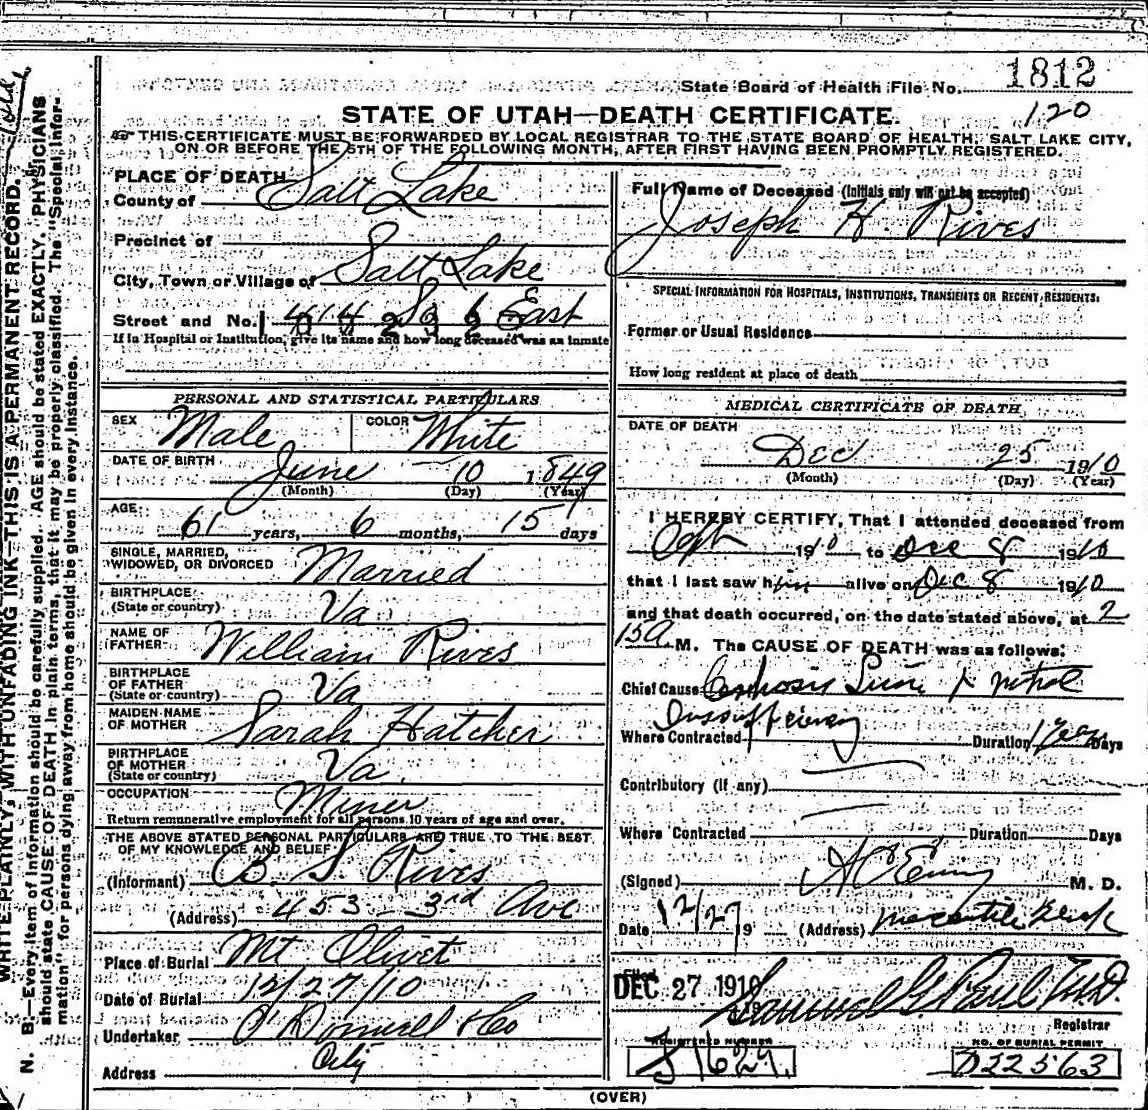 State Board of Health File No. 1812
120
STATE OF UTAH—DEATH CERTIFICATE.
THIS CERTIFICATE MUST BE FORWARDED BY LOCAL REGISTRAR TO THE STATE BOARD OF HEALTH, SALT LAKE CITY,
ON OR BEFORE THE 5TH OF THE FOLLOWING MONTH, AFTER FIRST HAVING BEEN PROMPTLY REGISTERED.
PLACE OF DEATH
County of Salt Lake
Precinct of
City, Town or Village of Salt Lake
Street and No. 414 So 6 East
If in Hospital or Institution, give its name and how long deceased was an inmate
PERSONAL AND STATISTICAL PARTICULARS
SEX Male COLOR White
DATE OF BIRTH June 10 1849
(Month) (Day) (Year)
AGE
61 years, 6 months, 15 days
SINGLE, MARRIED,
WIDOWED, OR DIVORCED Married
BIRTHPLACE
(State or country) Va
NAME OF
FATHER William Rives
BIRTHPLACE
OF FATHER
(State or country) Va
MAIDEN NAME
OF MOTHER Sarah Hatcher
BIRTHPLACE
OF MOTHER
(State or country) Va.
OCCUPATION Miner
Return remunerative employment for all persons 10 years of age and over.
THE ABOVE STATED PERSONAL PARTICULARS ARE TRUE TO THE BEST
OF MY KNOWLEDGE AND BELIEF
(Informant) B. S. Rives
(Address) 453 - 3rd Ave
Place of Burial Mt Olivet
Date of Burial 12/27/10
Undertaker O'Donnell & Co
Address City
Full Name of Deceased (Initials only will not be accepted)
Joseph H. Rives
SPECIAL INFORMATION FOR HOSPITALS, INSTITUTIONS, TRANSIENTS OR RECENT RESIDENTS:
Former or Usual Residence
How long resident at place of death
MEDICAL CERTIFICATE OF DEATH
DATE OF DEATH
Dec 25 1910
(Month) (Day) (Year)
I HEREBY CERTIFY, That I attended deceased from
1910 to Dec 8 1910
that I last saw him alive on Dec 8 1910
and that death occurred, on the date stated above, at 2
15 A. M. The CAUSE OF DEATH was as follows:
Chief Cause
Insufficiency
Where Contracted Duration 1 Year Days
Contributory (If any)
Where Contracted Duration Days
(Signed) M. D.
Date 12/27 19 (Address) Mercantile
Filed
DEC 27 1910 Samuel G Paul M.D.
Registrar
REGISTERED NUMBER
J 1629.
NO. OF BURIAL PERMIT
D22563
(OVER)
WRITE PLAINLY, WITH UNFADING INK—THIS IS A PERMANENT RECORD.
N. B.—Every item of information should be carefully supplied. AGE should be stated EXACTLY. PHYSICIANS
should state CAUSE OF DEATH in plain terms, that it may be properly classified. The "Special Infor-
mation" for persons dying away from home should be given in every instance.